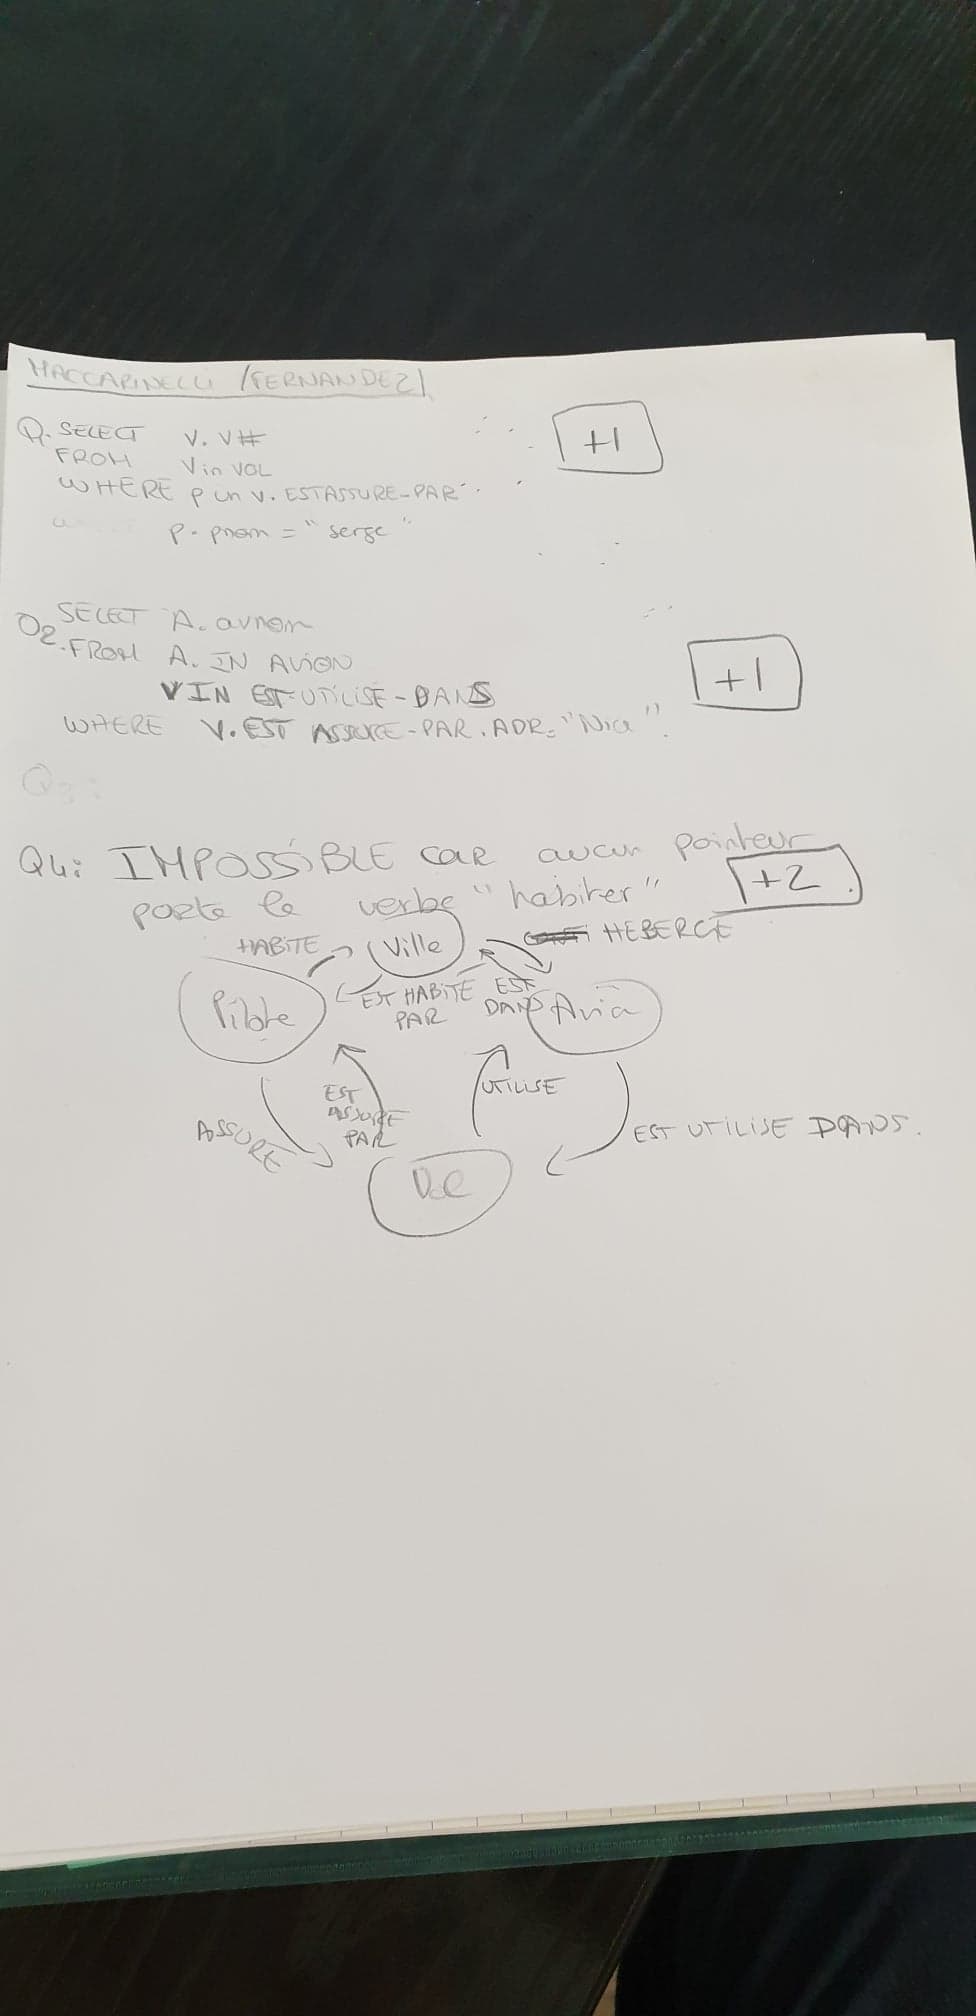 MACCARINELLI / FERNANDEZ
Q. SELECT V. V#
+1
FROM V in VOL
WHERE p in v. ESTASSURE-PAR
p. pnom = "serge"
Q2. SELECT A. avnom
FROM A. IN AVION
+1
V IN EST-UTILISE-DANS
WHERE V. EST ASSURE-PAR. ADR= "Nice".
Q3:
Q4: IMPOSSIBLE CAR aucun pointeur
porte le verbe "habiter"
+2
HABITE Ville HEBERGE
Pilote EST HABITE PAR EST DANS
UTILISE
EST ASSURE PAR
ASSURE
EST UTILISE DANS.